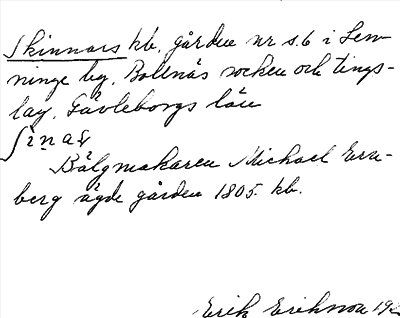 Skinnars kb. gården nr s.6 i Sem-
ninge by, Bollnäs socken och tings-
lag. Gävleborgs län
Bälgmakaren Michael Erns-
berg ägde gården 1805. kb.
Erik Erikson 19